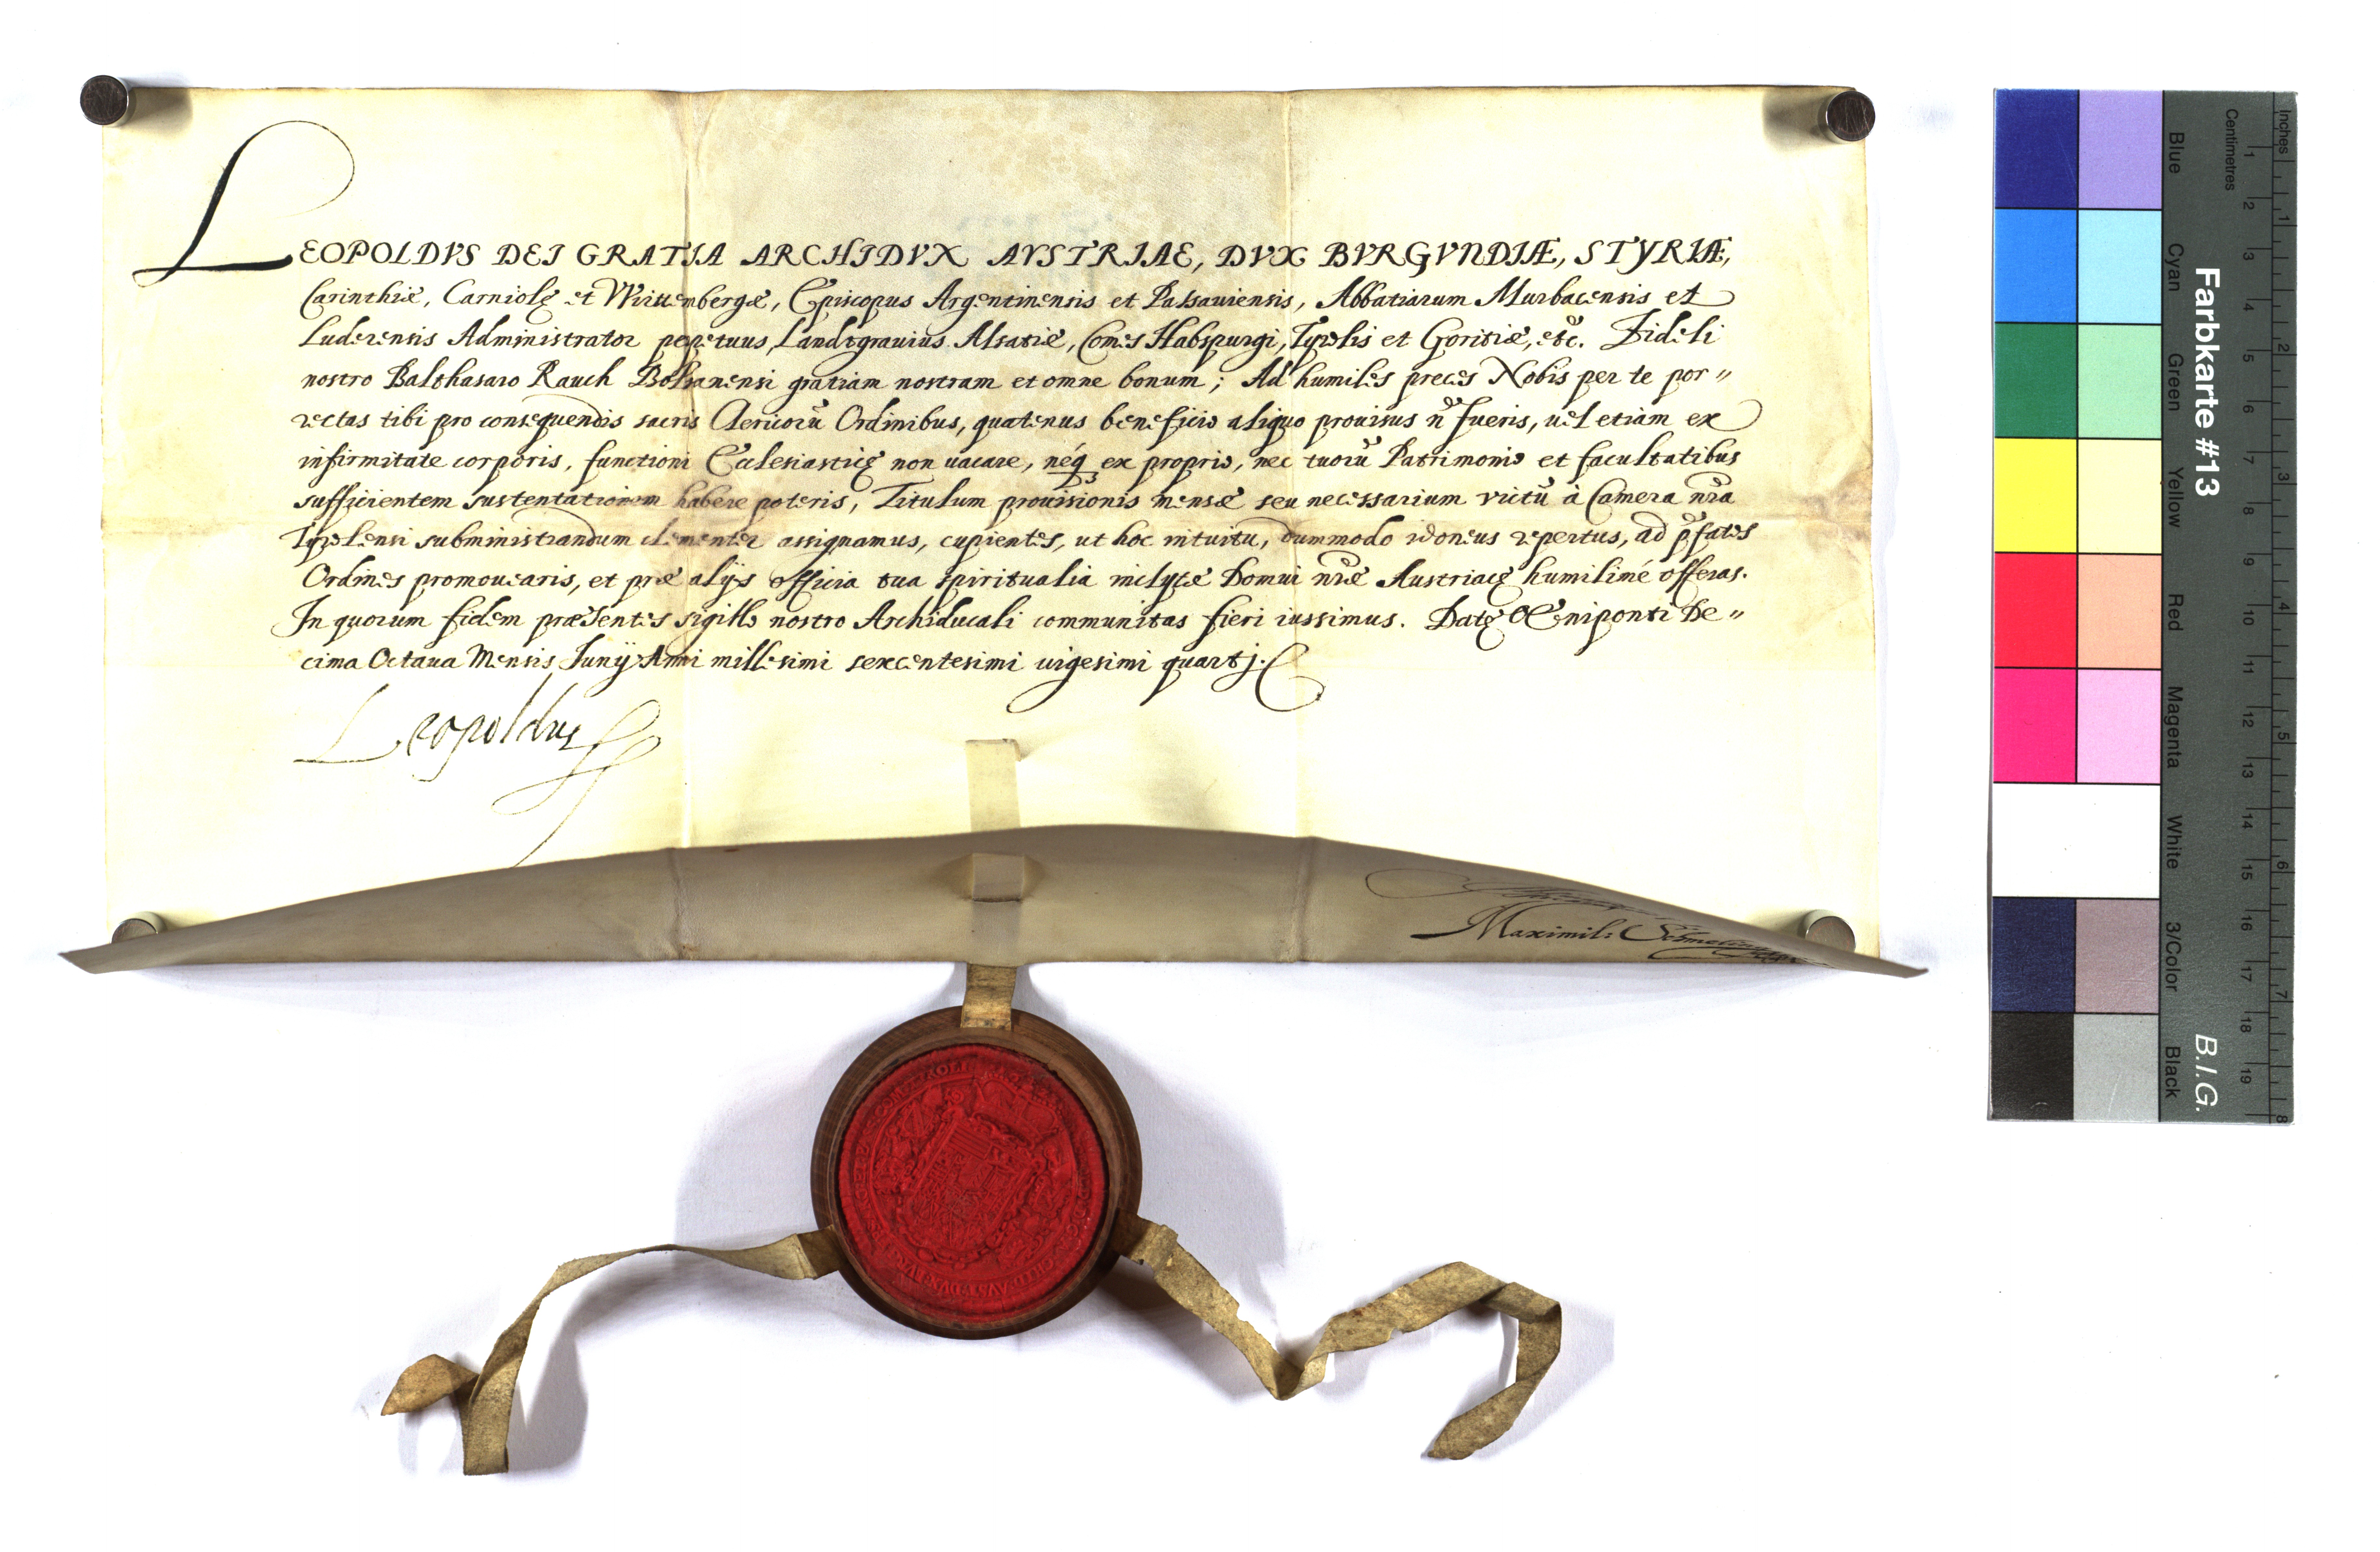 LEOPOLDVS DEI GRATIA ARCHIDVX AVSTRIAE, DVX BVRGVNDIÆ, STYRIÆ,
Carinthiæ, Carniolę et Wirttembergæ, Episcopus Argentinensis et Passauiensis, Abbatiarum Murbacensis et
Luderensis Administrator perpetuus, Landtgrauius Alsatiæ, Comes Habspurgi, Tyrolis et Goritiæ, etc. Fideli
nostro Balthasaro Rauch Bolsanensi gratiam nostram et omne bonum; Ad humiles preces Nobis per te por〃
rectas tibi pro consequendis sacris Clericorũ Ordinibus, quatenus beneficio aliquo prouisus ñ fueris, uel etiam ex
infirmitate corporis, functioni Ecclesiasticę non uacare, neq́ ex proprio, nec tuorũ Patrimonio et facultatibus
sufficientem sustentationem habere poteris, Titulum prouisionis mensæ seu necessarium victũ à Camera nr̃a
Tyrolensi subministrandum clementer assignamus, cupientes, ut hoc intuitu, dummodo idoneus repertus, ad p̃fatos
Ordines promouearis, et præ alijs officia tua spiritualia inclytæ Domui nr̃æ Austriacę humilimé offeras.
In quorum fidem præsentes sigillo nostro Archiducali communitas fieri iussimus. Datę Œniponti De〃
cima Octaua Mensis Junij Anni millesimi sexcentesimi uigesimi quartj.
Leopoldus
Maximil:
Farbkarte #13
B.I.G.
Inches
Centimetres
1 2 3 4 5 6 7 8 9 10 11 12 13 14 15 16 17 18 19
1 2 3 4 5 6 7 8
Blue
Cyan
Green
Yellow
Red
Magenta
White
3/Color
Black